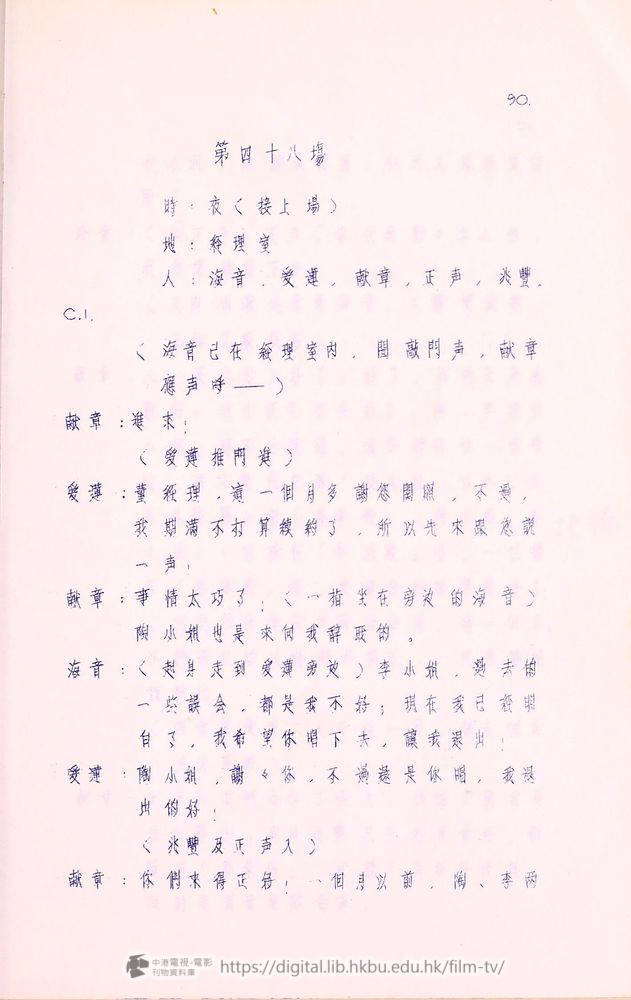 90.
第四十八場
時：夜（接上場）
地：經理室
人：海音，愛蓮，獻章，正声，兆豐。
C.I.
（海音已在經理室內，聞敲門声，獻章
應声呼——）
獻章：進來！
（愛蓮推門進）
愛蓮：董經理，這一個月多謝您關照，不過，
我期滿不打算續約了，所以先來跟您說
一声！
獻章：事情太巧了！（一指坐在旁边的海音）
陶小姐也是來向我辭職的。
海音：（起身走到愛蓮旁边）李小姐，過去的
一些誤会，都是我不好；現在我已經明
白了，我希望你唱下去，讓我退出！
愛蓮：陶小姐，謝々你，不過還是你唱，我退
出的好！
（兆豐及正声入）
獻章：你們來得正好！一個月以前，陶、李两
中港電視·電影
刊物資料庫
https://digital.lib.hkbu.edu.hk/film-tv/